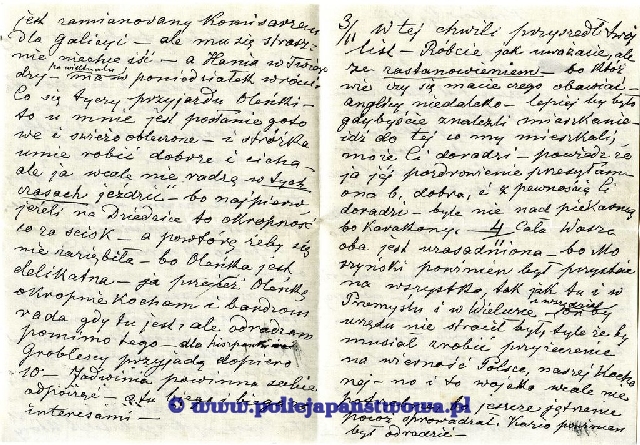 jest zamianowany Komisarzem
dla Galicyi – ale mu się strasz-
nie niechce iść – a Hania w Twier
dzy – ma w poniedziałek wrócić
Co się tyczy przyjazdu Oleńki –
to u mnie jest posłanie goto
we i świeżo obleczone – i stróżka
umie robić dobrze i cicho –
ale ja wcale nie radzę w tych
czasach jeździć – bo najpierw
jeżeli na Dziedzice to okropność
co za ścisk – a powtóre żeby się
nie naziębiła – bo Oleńka jest
delikatna – ja przecież Oleńkę
okropnie kocham i bardzom
rada gdy tu jest, ale odradzam
pomimo tego –
Groblescy przyjadą dopiero
10 – Jadwinia powinna sobie
odpocząć – a tu
interesami –
3/11 W tej chwili przyszedł Twój
list – Róbcie jak uważacie, ale
ze zastanowieniem – bo któż
wie czy się macie czego obawiać –
anglicy niedaleko – lepiej by było
gdybyście znaleźli mieszkanie –
idź do tej co my mieszkali,
może Ci doradzi – powiedz że
ja jej pozdrowienie przesyłam
ona b. dobra, i z pewnością Ci
doradzi – byle nie nad piekarnią
bo karakony. – 4 Cała Wasza
oba jest uzasadniona – bo Mo
szyński powinien był przystać
na wszystko, tak jak tu i w
Przemyślu i w Wielicce –
urzędu nie stracił byłby, tyle że by
musiał zrobić przyrzeczenie
na wierność Polsce, naszej Kocha
nej – no i to wojsko wcale nie
jeszcze jątrzenie
sprowadzał. Kazio powinien
był odradzić –
© www.policjapanstwowa.pl